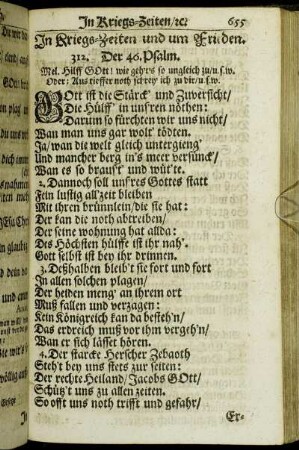 In Kriegs-Zeiten/ꝛc. 655
In Kriegs-Zeiten und um Frieden.
312. Der 46. Psalm.
Mel. Hilff GOtt: wie geht's so ungleich zu/u.s.w.
Oder: Aus tieffer noth schrey ich zu dir/u.s.w.
GOtt ist die Stärck' und Zuversicht/
Die Hülff' in unsren nöthen:
Darum so fürchten wir uns nicht/
Wan man uns gar wolt' tödten.
Ja/wan die welt gleich untergieng'
Und mancher berg in's meer versünck'/
Wan es so braust' und wüt'te.
2. Dannoch soll unsres Gottes statt
Fein lustig all'zeit bleiben
Mit ihren brünnlein/die sie hat:
Der kan die noth abtreiben/
Der seine wohnung hat allda:
Des Höchsten hülffe ist ihr nah'.
Gott selbst ist bey ihr drinnen.
3. Deßhalben bleib't sie fort und fort
In allen solchen plagen/
Der heiden meng' an ihrem ort
Muß fallen und verzagen:
Kein Königreich kan da besteh'n/
Das erdreich muß vor ihm vergeh'n/
Wan er sich lässet hören.
4. Der starcke Herscher Zebaoth
Steh't bey uns stets zur seiten:
Der rechte Heiland/Jacobs GOtt/
Schütz't uns zu allen zeiten.
So offt uns noth trifft und gefahr/
Er-